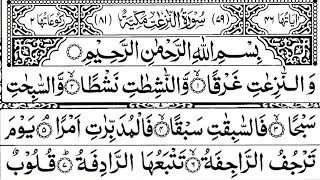 اٰیَاتُهَا ٤٦ (٧٩) سُوْرَةُ النّٰزِعٰتِ مَكِّیَّةٌ (٨١) رُكُوْعَاتُهَا ٢
بِسْمِ اللّٰهِ الرَّحْمٰنِ الرَّحِیْمِ
وَالنّٰزِعٰتِ غَرْقًا ۙ﴿١﴾ وَّالنّٰشِطٰتِ نَشْطًا ۙ﴿٢﴾ وَّالسّٰبِحٰتِ
سَبْحًا ۙ﴿٣﴾ فَالسّٰبِقٰتِ سَبْقًا ۙ﴿٤﴾ فَالْمُدَبِّرٰتِ اَمْرًا ۘ﴿٥﴾ یَوْمَ
تَرْجُفُ الرَّاجِفَةُ ۙ﴿٦﴾ تَتْبَعُهَا الرَّادِفَةُ ؕ﴿٧﴾ قُلُوْبٌ